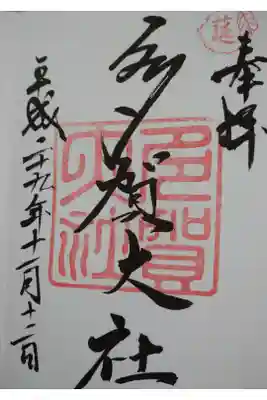 奉拝
多賀大社
多賀大社
平成二十九年十一月十二日